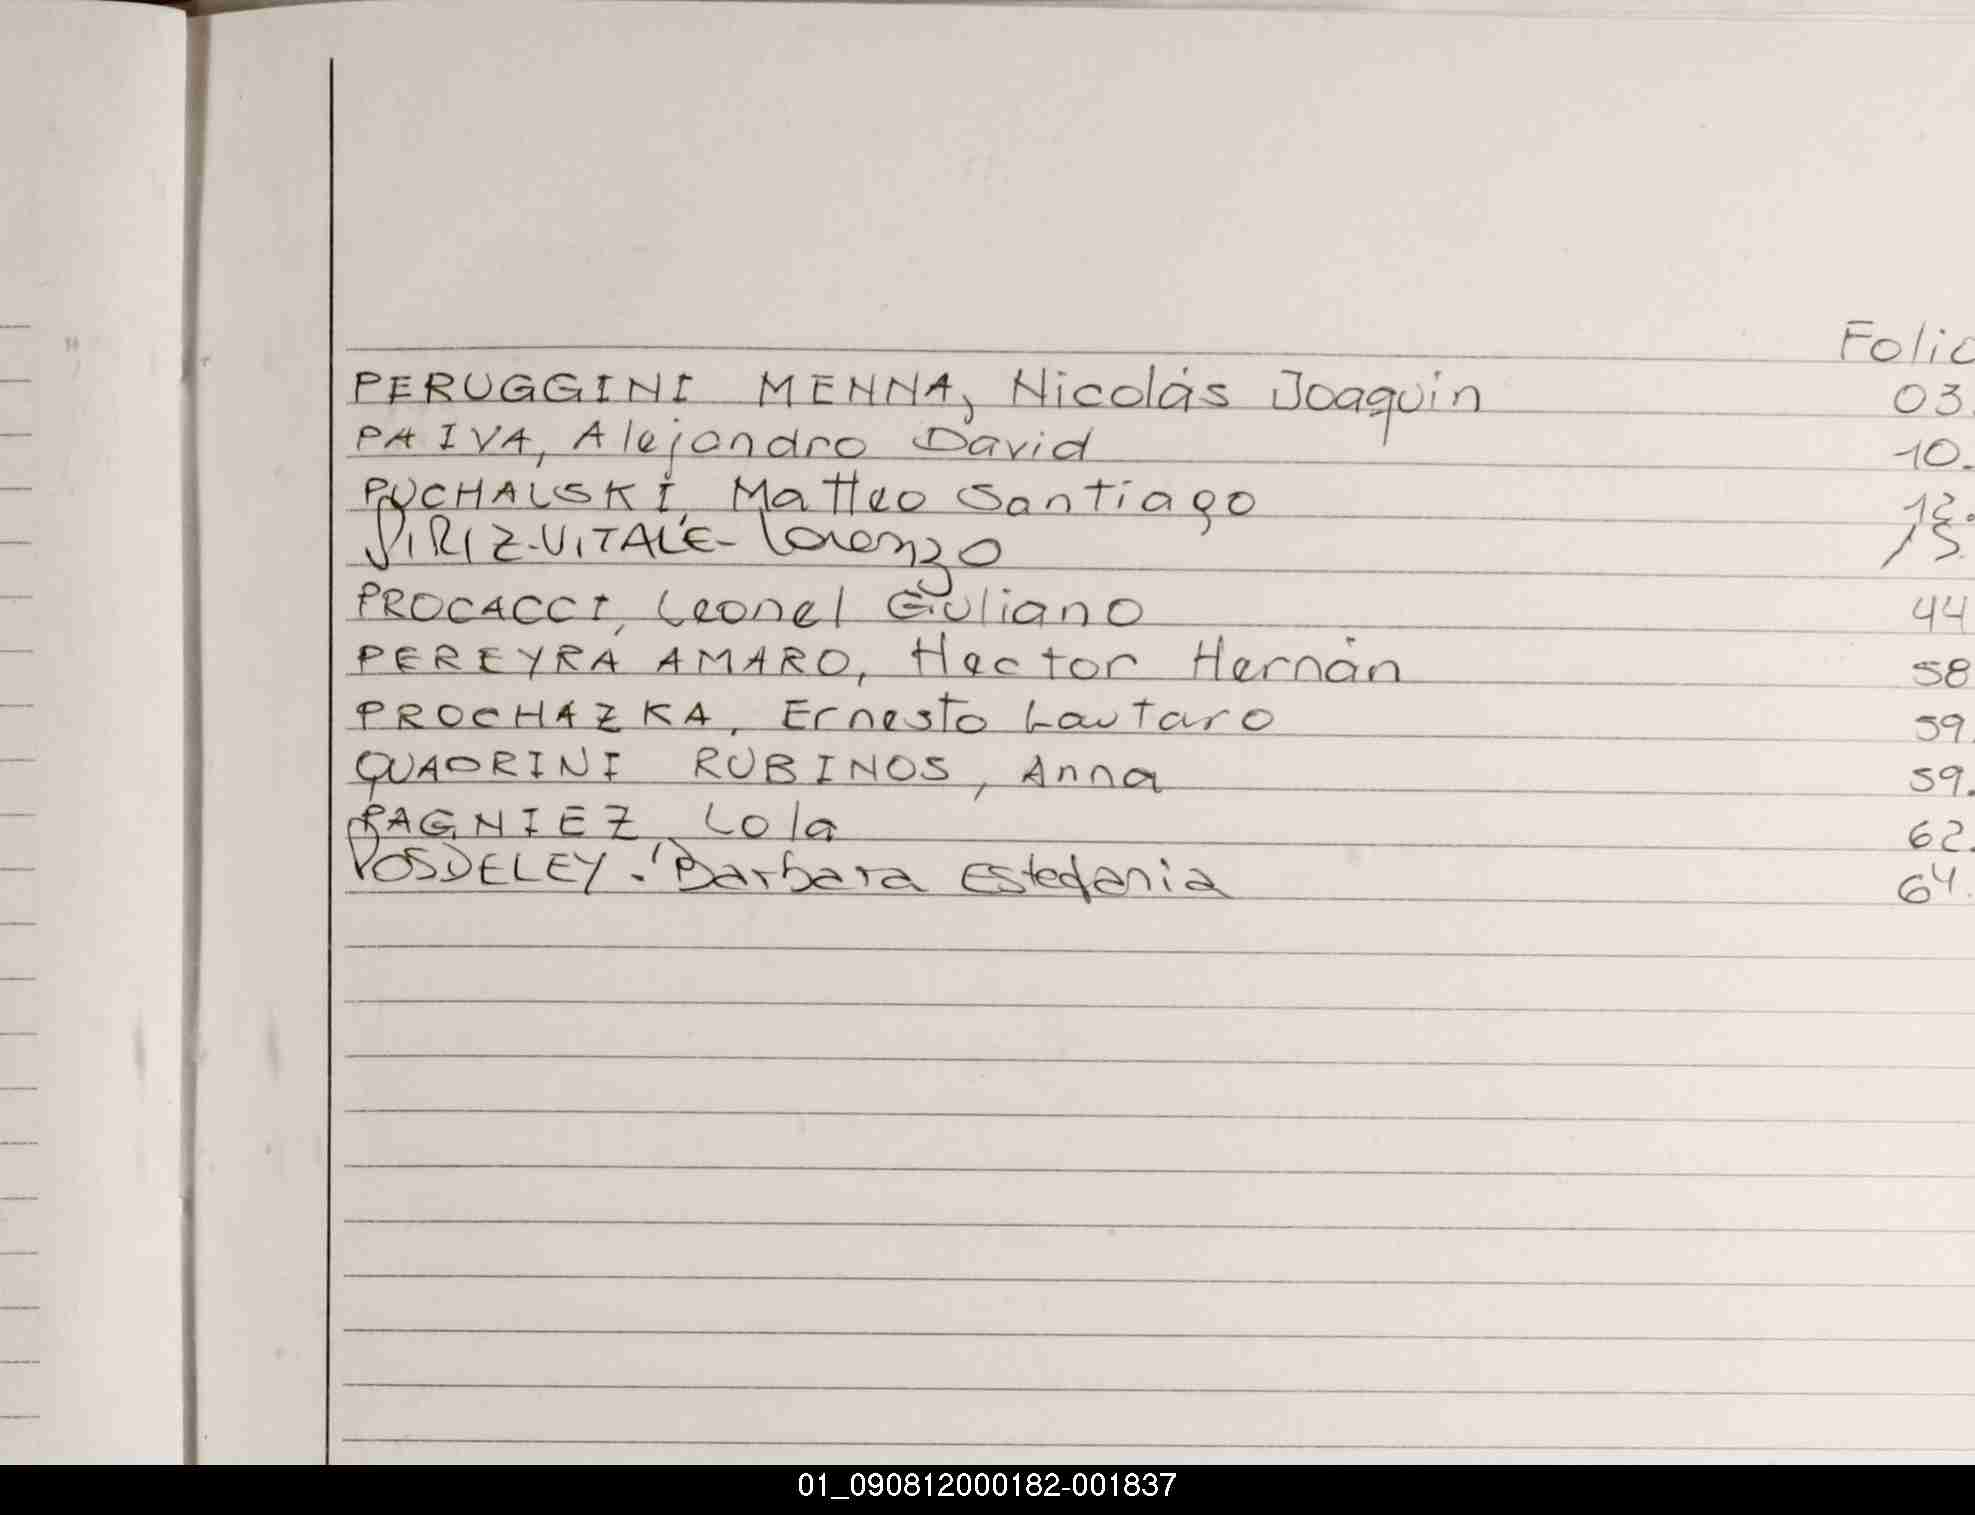 Folio
PERUGGINI MENNA, Nicolás Joaquín 03.
PAIVA, Alejandro David 10.
PUCHALSKI, Matteo Santiago 12.
PIRIZ-VITALE- Lorenzo 15.
PROCACCI, Leonel Giuliano 44
PEREYRA AMARO, Hector Hernán 58
PROCHAZKA, Ernesto Lautaro 59.
QUADRINI RUBINOS, Anna 59.
PAGNIEZ, Lola 62.
POSDELEY. Barbara Estefania 64.
01_090812000182-001837